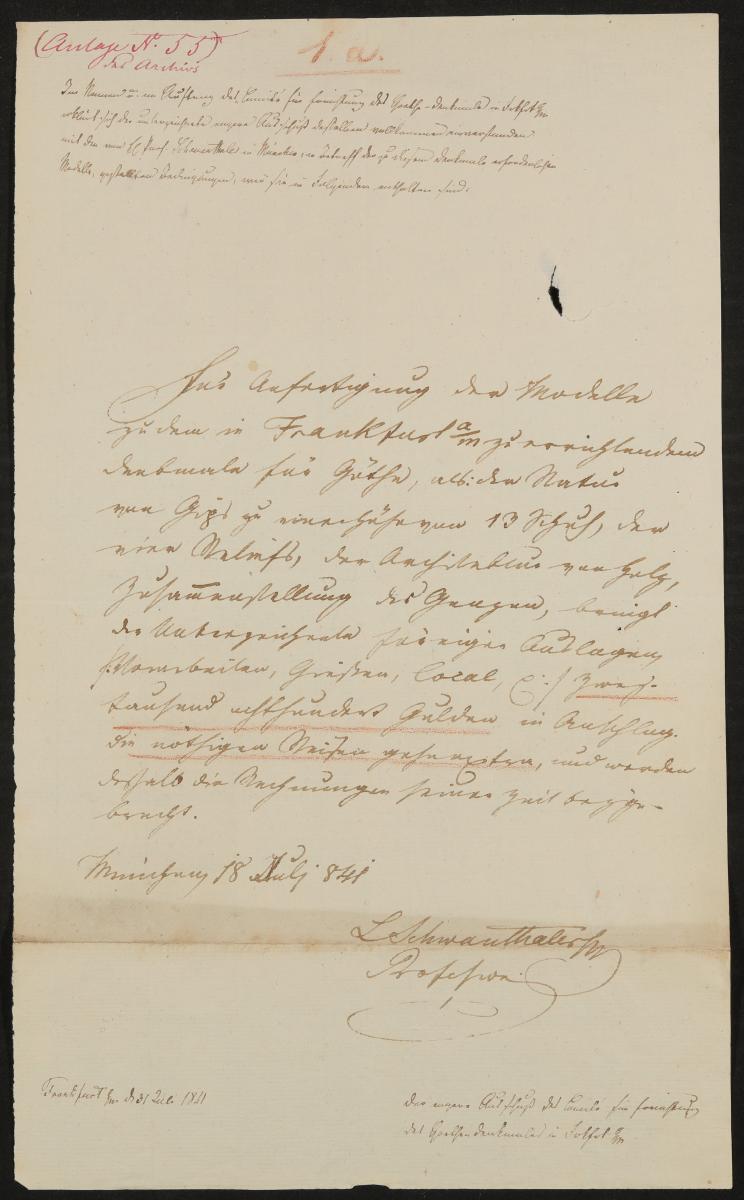 (Anlage N. 55)
des Archivs
1. a.
Im Namen u. im Auftrag des Comités für Errichtung des Goethe-Denkmals in Frkfrt a/m
erklärt sich der unterzeichnete engere Ausschuß desselben vollkommen einverstanden
mit den von H. Prof. Schwanthaler in München, in Betreff der zu diesem Denkmale erforderlichen
Modelle, gestellten Bedingungen, wie sie in Folgendem enthalten sind:
Für Anfertigung der Modelle
zu dem in Frankfurt a/m zu errichtendem
Denkmale für Göthe, als: der Statue
von Gips zu einer Höhe von 13 Schuh, der
vier Reliefs, der Architektur von Holz,
Zusammenstellung des Ganzen, bringt
der Unterzeichnete für eigene Auslagen,
(Vorarbeiten, Giessen, Local, :/ Zwey-
tausend achthundert Gulden in Anschlag.
Die nöthigen Reisen gehen extra, und werden
deshalb die Rechnungen seiner Zeit beyge-
bracht.
München, 18 Juli 841
L Schwanthaler
Professor
Frankfurt a/m d. 31 Juli 1841
Der engere Ausschuß des Comités für Errichtung
des Goethedenkmales in Frkfrt a/m